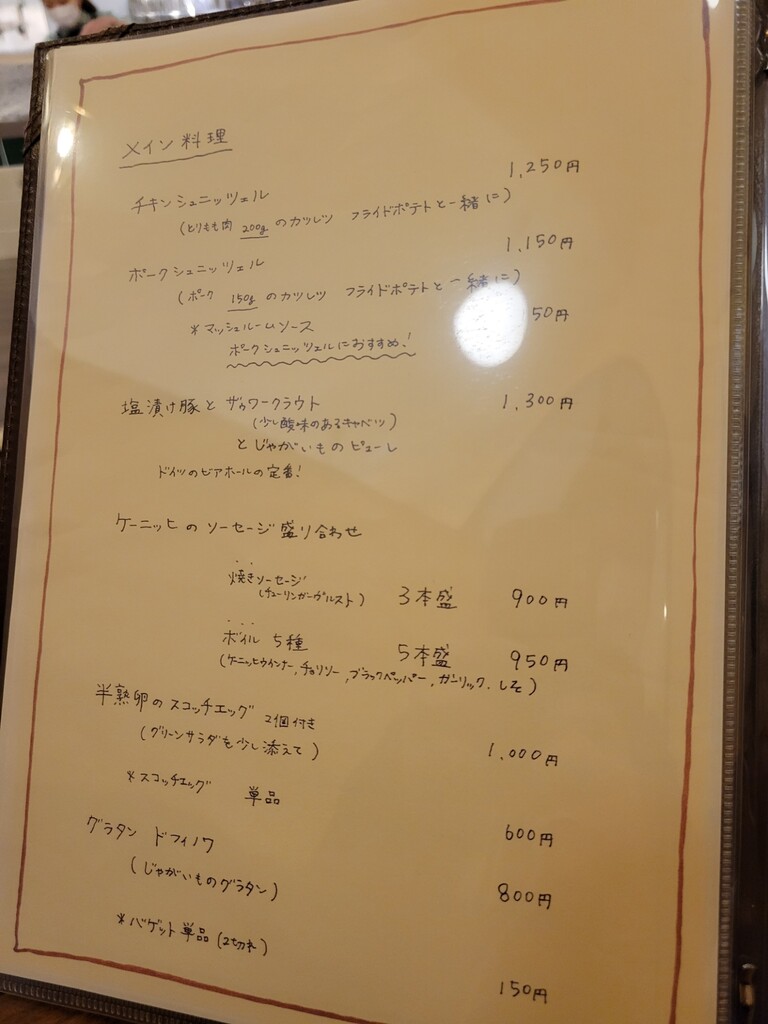 メイン料理
チキンシュニッツェル 1,250円
(とりもも肉 200gのカツレツ フライドポテトと一緒に)
ポークシュニッツェル 1,150円
(ポーク 150gのカツレツ フライドポテトと一緒に)
*マッシュルームソース 50円
ポークシュニッツェルにおすすめ!
塩漬け豚と ザウワークラウト 1,300円
(少し酸味のあるキャベツ)
と じゃがいもの ピューレ
ドイツのビアホールの定番!
ケーニッヒの ソーセージ盛り合わせ
焼きソーセージ 3本盛 900円
(チューリンガーヴルスト)
ボイル 5種 5本盛 950円
(ケーニッヒウインナー, チョリソー, ブラックペッパー, ガーリック, しそ)
半熟卵の スコッチエッグ 2個付き
(グリーンサラダを少し添えて) 1,000円
*スコッチエッグ 単品 600円
グラタン ドフィノワ 800円
(じゃがいものグラタン)
*バゲット単品 (2切れ) 150円